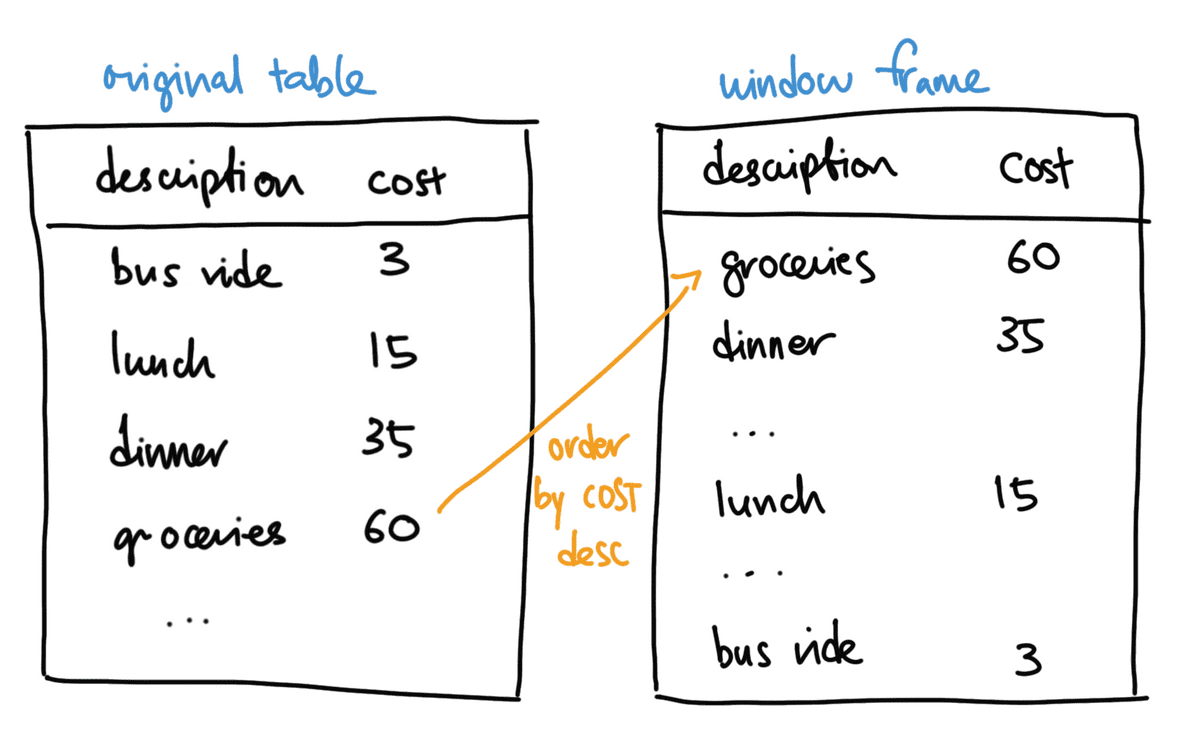 original table
description cost
bus ride 3
lunch 15
dinner 35
groceries 60
...
order
by cost
desc
window frame
description cost
groceries 60
dinner 35
...
lunch 15
...
bus ride 3